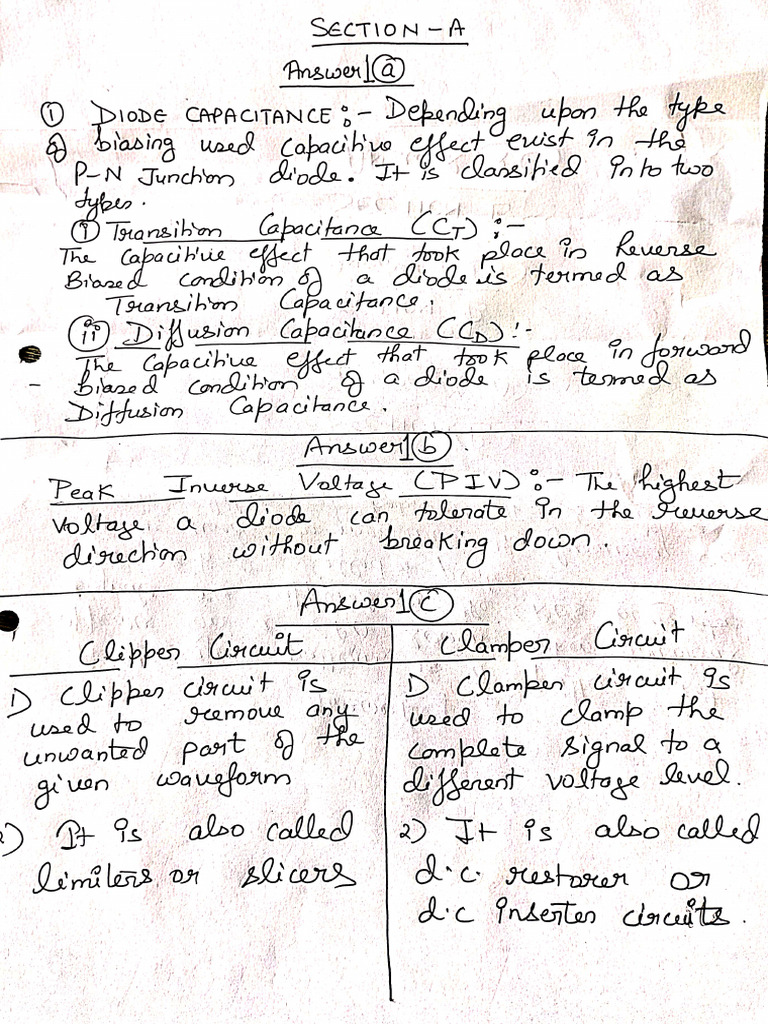 SECTION - A
Answer 1 (a)
① DIODE CAPACITANCE :- Depending upon the type
of biasing used capacitive effect exist in the
P-N Junction diode. It is classified into two
types.
(i) Transition Capacitance (CT) :-
The Capacitive effect that took place in Reverse
Biased condition of a diode is termed as
Transition Capacitance.
(ii) Diffusion Capacitance (CD) :-
The Capacitive effect that took place in forward
- Biased condition of a diode is termed as
Diffusion Capacitance.
Answer 1 (b).
Peak Inverse Voltage (PIV) :- The highest
voltage a diode can tolerate in the reverse
direction without breaking down.
Answer 1 (c)
Clipper Circuit
1) Clipper circuit is
used to remove any
unwanted part of the
given waveform
2) It is also called
limiters or slicers
Clamper Circuit
1) Clamper circuit is
used to clamp the
complete signal to a
different voltage level.
2) It is also called
d.c. restorer or
d.c inserter circuits.